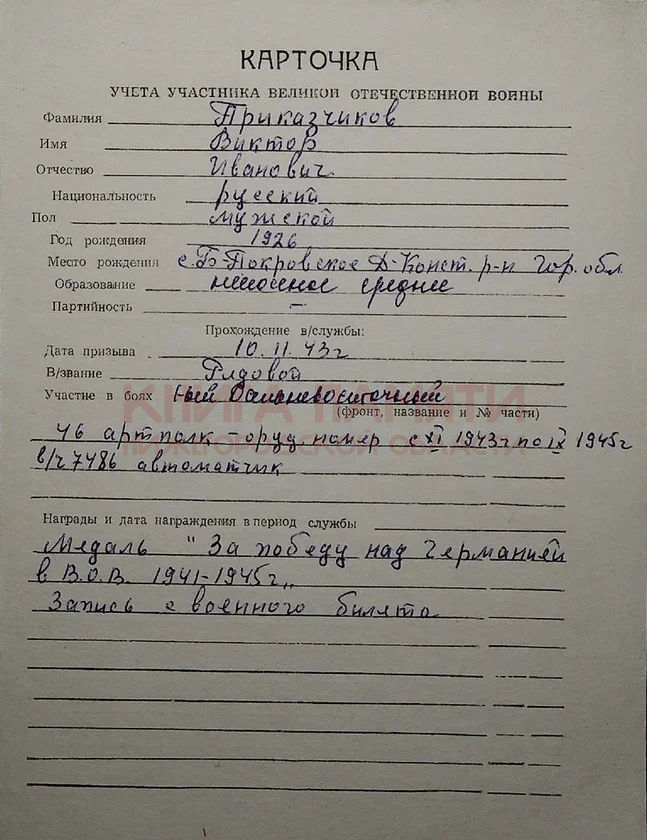 КАРТОЧКА
УЧЕТА УЧАСТНИКА ВЕЛИКОЙ ОТЕЧЕСТВЕННОЙ ВОЙНЫ
Фамилия Приказчиков
Имя Виктор
Отчество Иванович.
Национальность русский
Пол мужской
Год рождения 1926
Место рождения с. Б-Покровское Д-Конст. р-н Гор. обл
Образование неполное среднее
Партийность –
Прохождение в/службы:
Дата призыва 10.11.43г
В/звание Рядовой
Участие в боях 1ый Дальневосточный
(фронт, название и № части)
КНИГА ПАМЯТИ
НИЖЕГОРОДСКОЙ ОБЛАСТИ
46 артполк – оруд номер с XI 1943г по IX 1945г
в/ч 7486 автоматчик
Награды и дата награждения в период службы
Медаль "За победу над Германией
в В.О.В. 1941-1945г"
Запись с военного билета